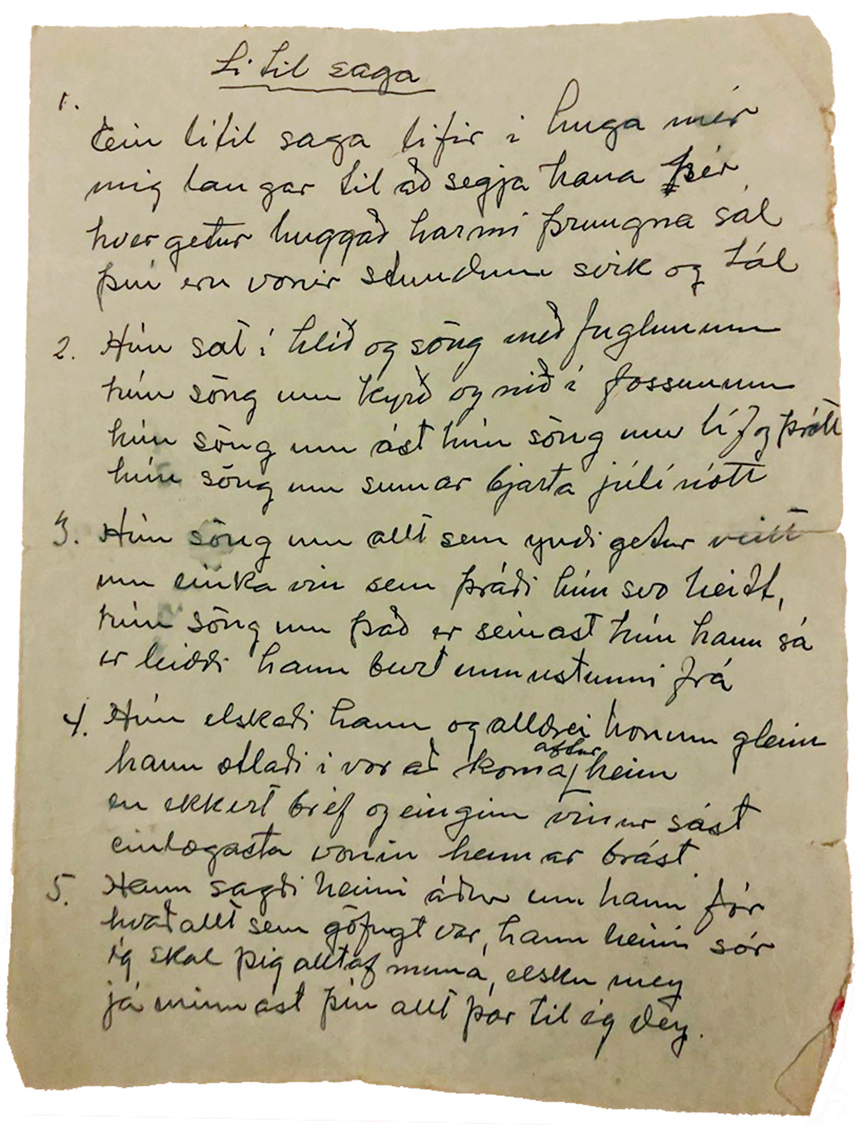 Lítil saga
1.
Ein lítil saga lifir í huga mér
mig langar til að segja hana þér
hver getur huggað harmi þrungna sál
því eru vonir stundum svik og tál
2. Hún sat í hlíð og söng með fuglunum
hún söng um kyrð og nið í fossunum
hún söng um ást hún söng um líf og þrótt
hún söng um sumar bjarta júlí nótt
3. Hún söng um allt sem yndi getur veitt
um einka vin sem þráði hún svo heitt,
hún söng um það er seinast hún hann sá
er leiddi hann burt unnustunni frá
4. Hún elskaði hann og alldrei honum gleim
hann ætlaði í vor að koma aftur heim
en ekkert bréf og eingin vinur sást
einlægasta vonin hennar brást
5. Hann sagði henni áður enn hann fór
hvað allt sem göfugt var, hann henni sór
ég skal þig alltaf muna, elsku mey
já minnast þín allt þar til ég dey.